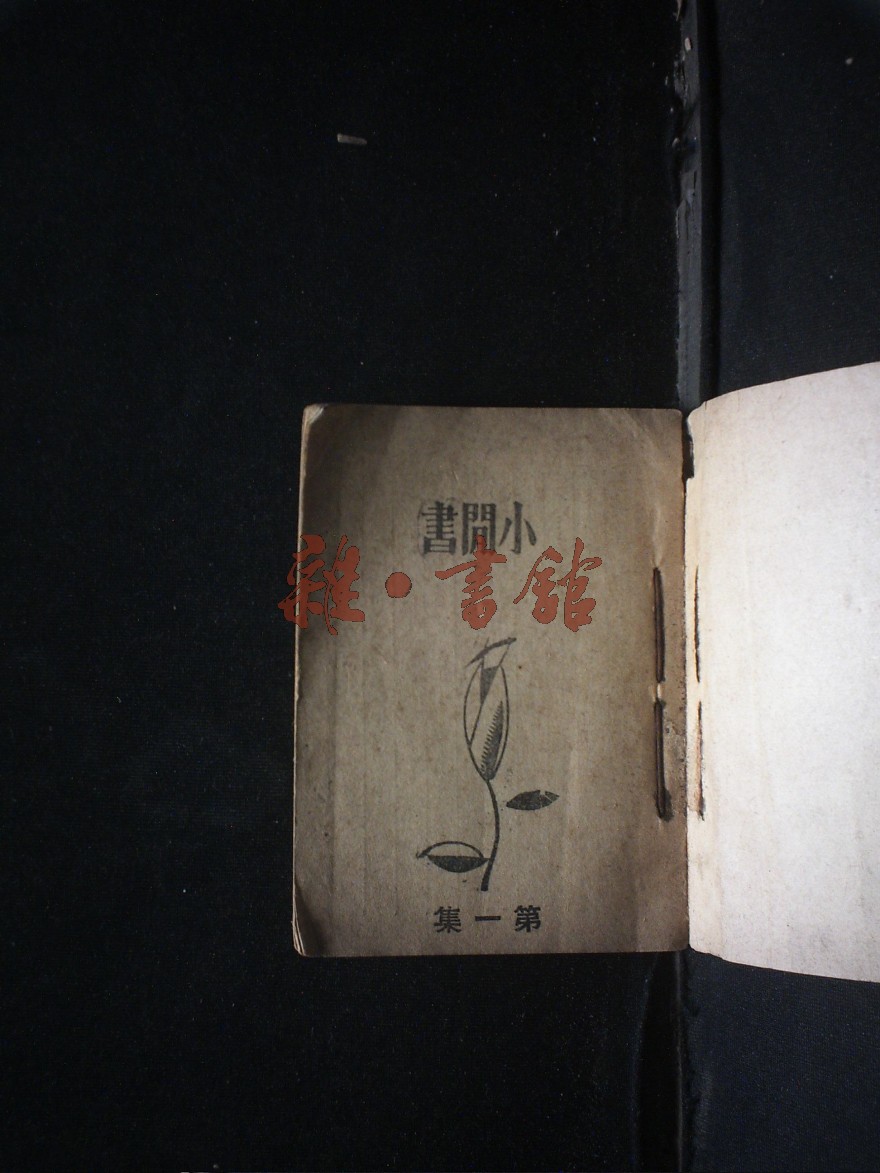 小閒書
雜·書館
第一集